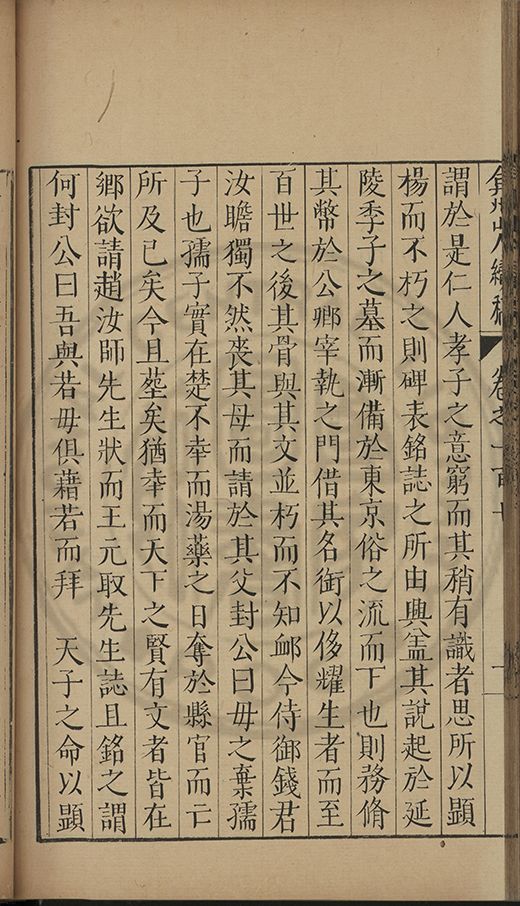 弇州續稿 卷之一百十 一
謂於是仁人孝子之意窮而其稍有識者思所以顯
楊而不朽之則碑表銘誌之所由興葢其說起於延
陵季子之墓而漸備於東京俗之流而下也則務脩
其幣於公卿宰執之門借其名銜以侈耀生者而至
百世之後其骨與其文並朽而不知䘏今侍御錢君
汝瞻獨不然喪其母而請於其父封公曰毋之棄孺
子也孺子實在楚不幸而湯藥之日奪於縣官而亡
所及已矣今且塟矣猶幸而天下之賢有文者皆在
鄉欲請趙汝師先生狀而王元馭先生誌且銘之謂
何封公曰吾與若毋俱藉若而拜 天子之命以顯